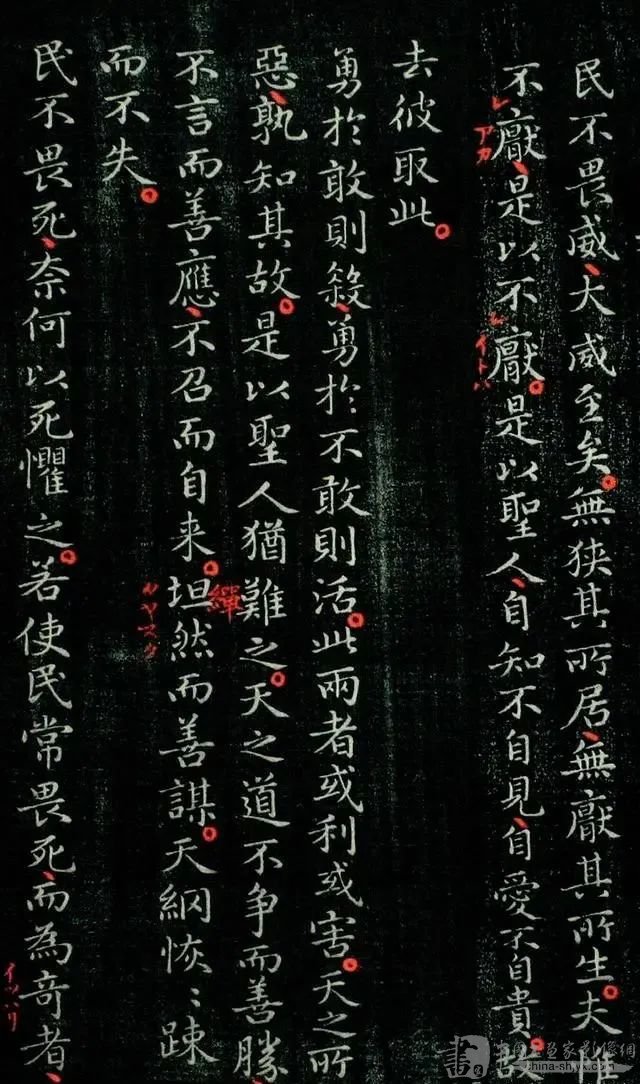 民不畏威大威至矣無狭其所居無厭其所生夫惟
不厭是以不厭是以聖人自知不自見自愛不自貴故
去彼取此
勇於敢則殺勇於不敢則活此兩者或利或害天之所
惡孰知其故是以聖人猶難之天之道不争而善勝
不言而善應不召而自来坦然而善謀天網恢〻踈
而不失
民不畏死奈何以死懼之若使民常畏死而為奇者
レ
アカ
レ
イトハ
繟
イツハリ
china-shyx.com